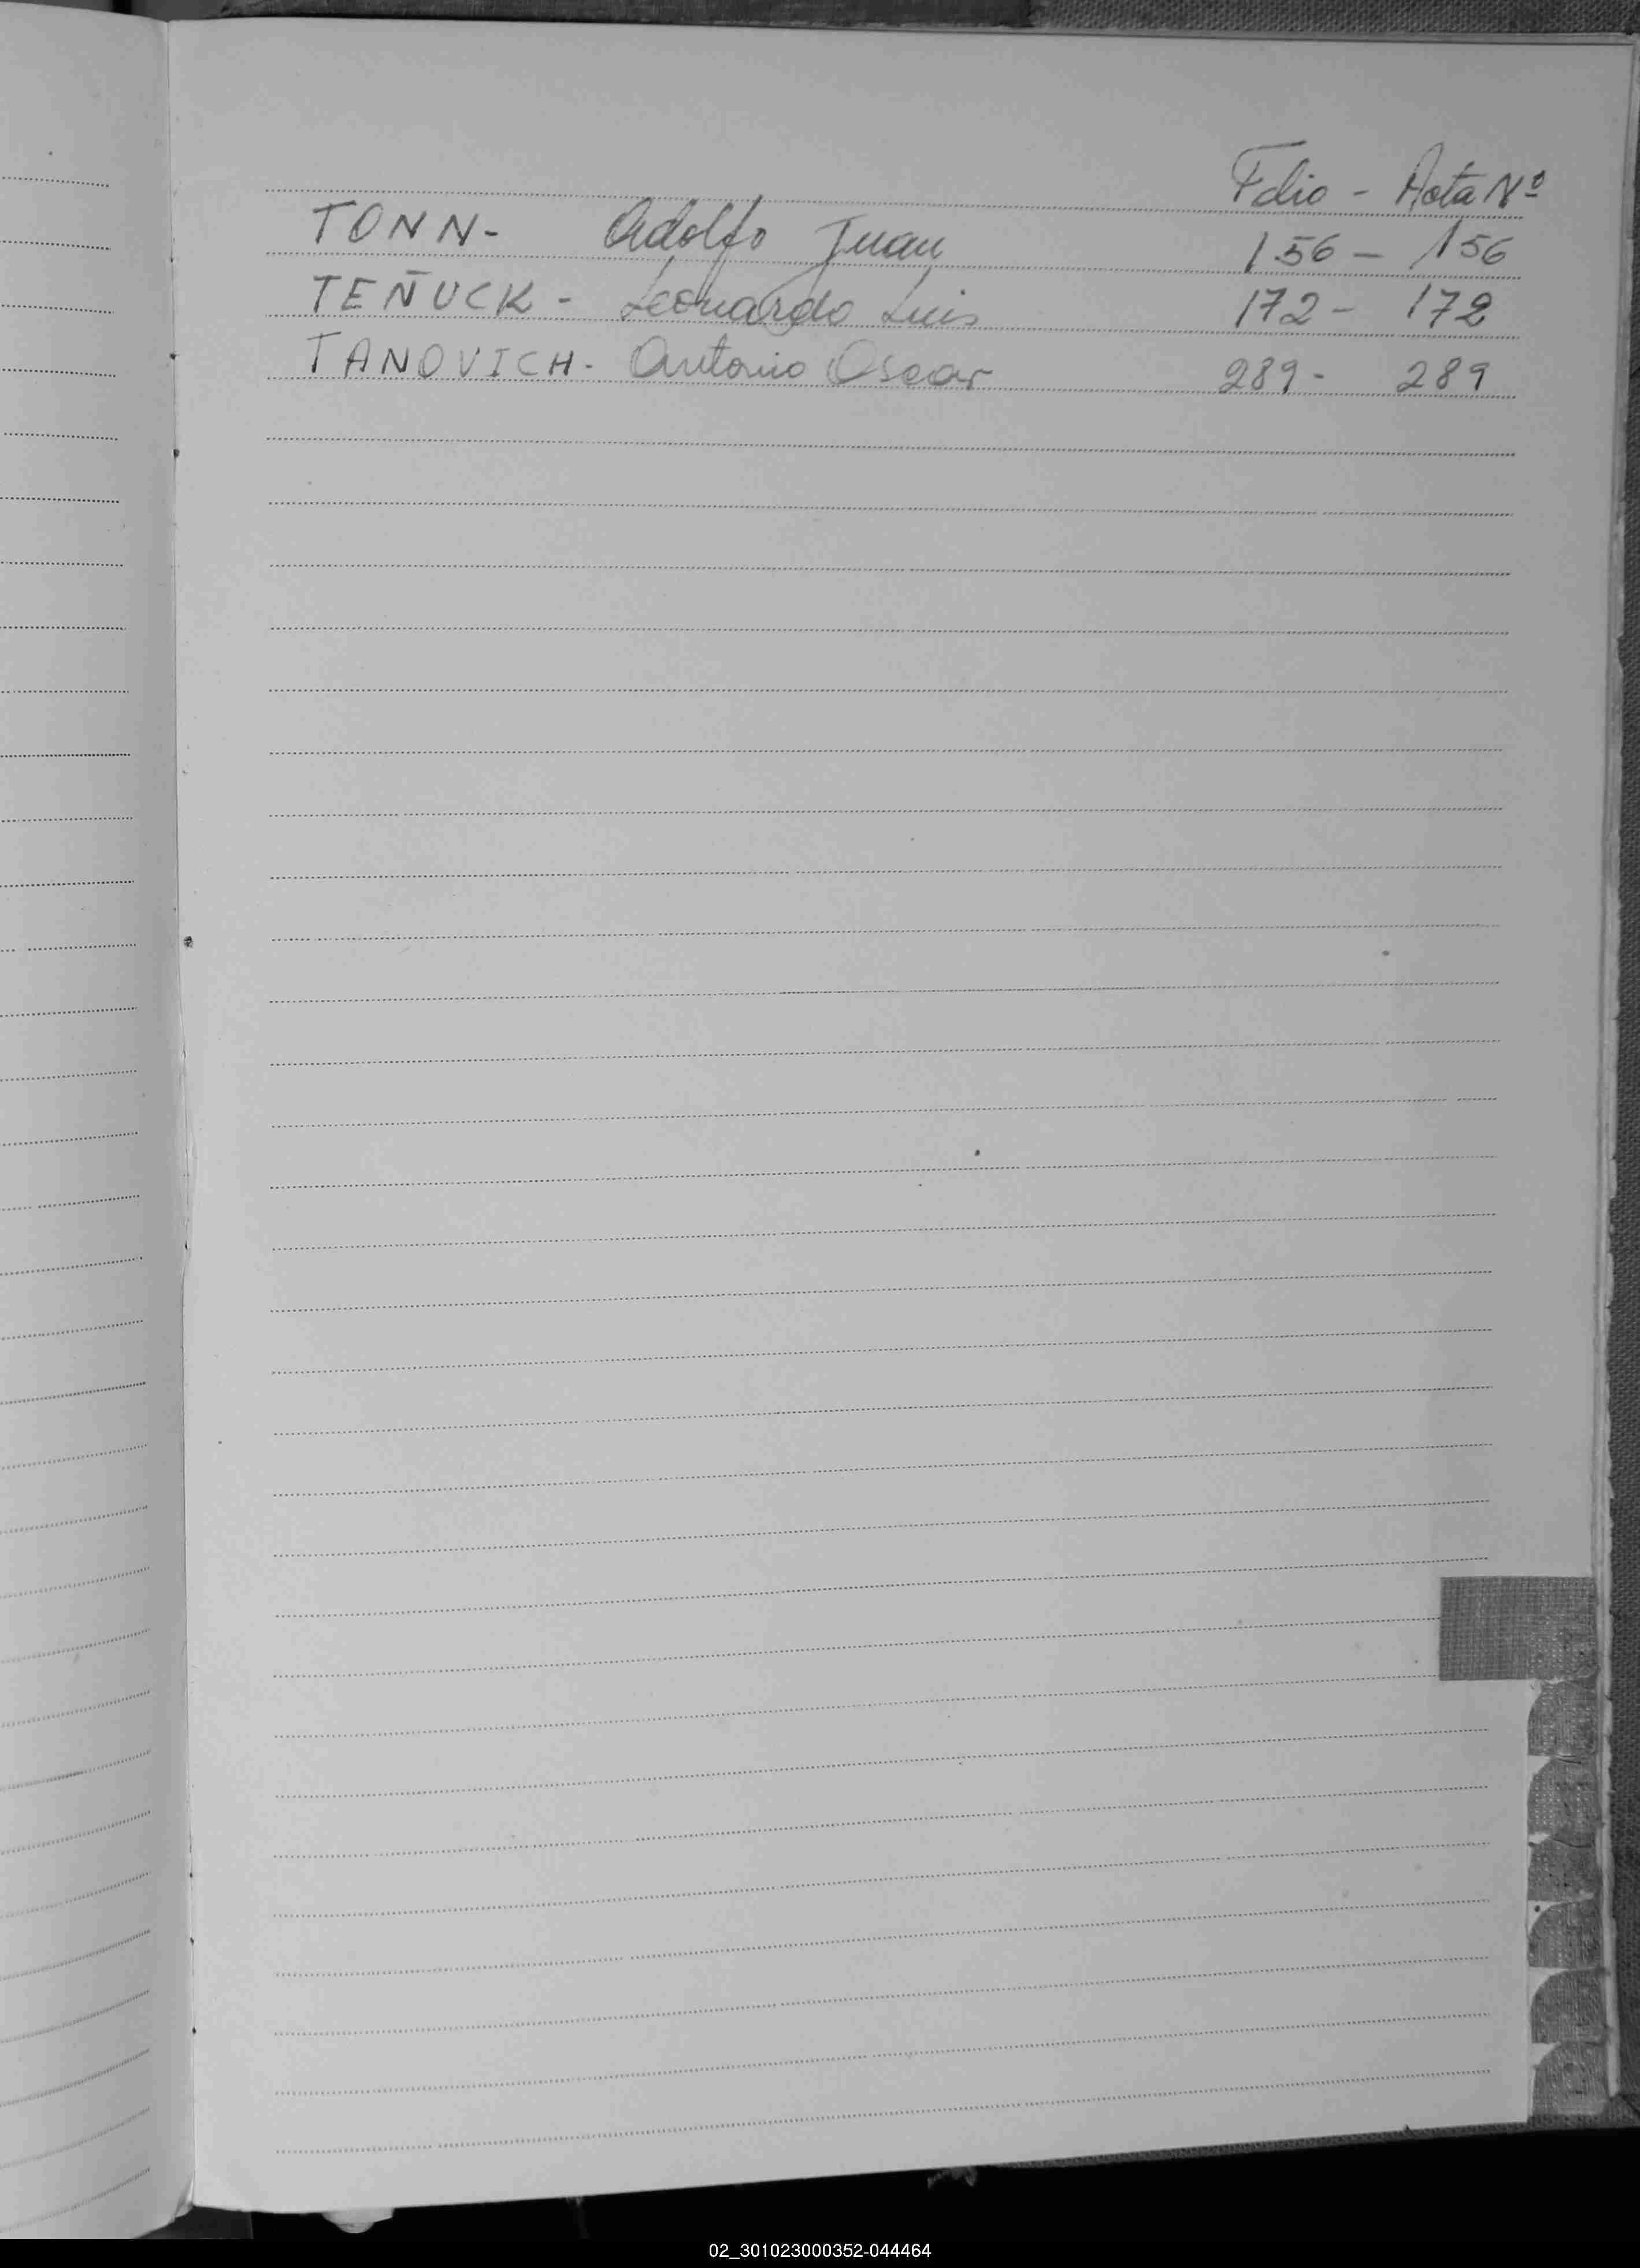 Folio - Acta Nº
TONN- Adolfo Juan 156 - 156
TEÑUCK - Leonardo Luis 172 - 172
TANOVICH - Antonio Oscar 289 - 289
02_301023000352-044464